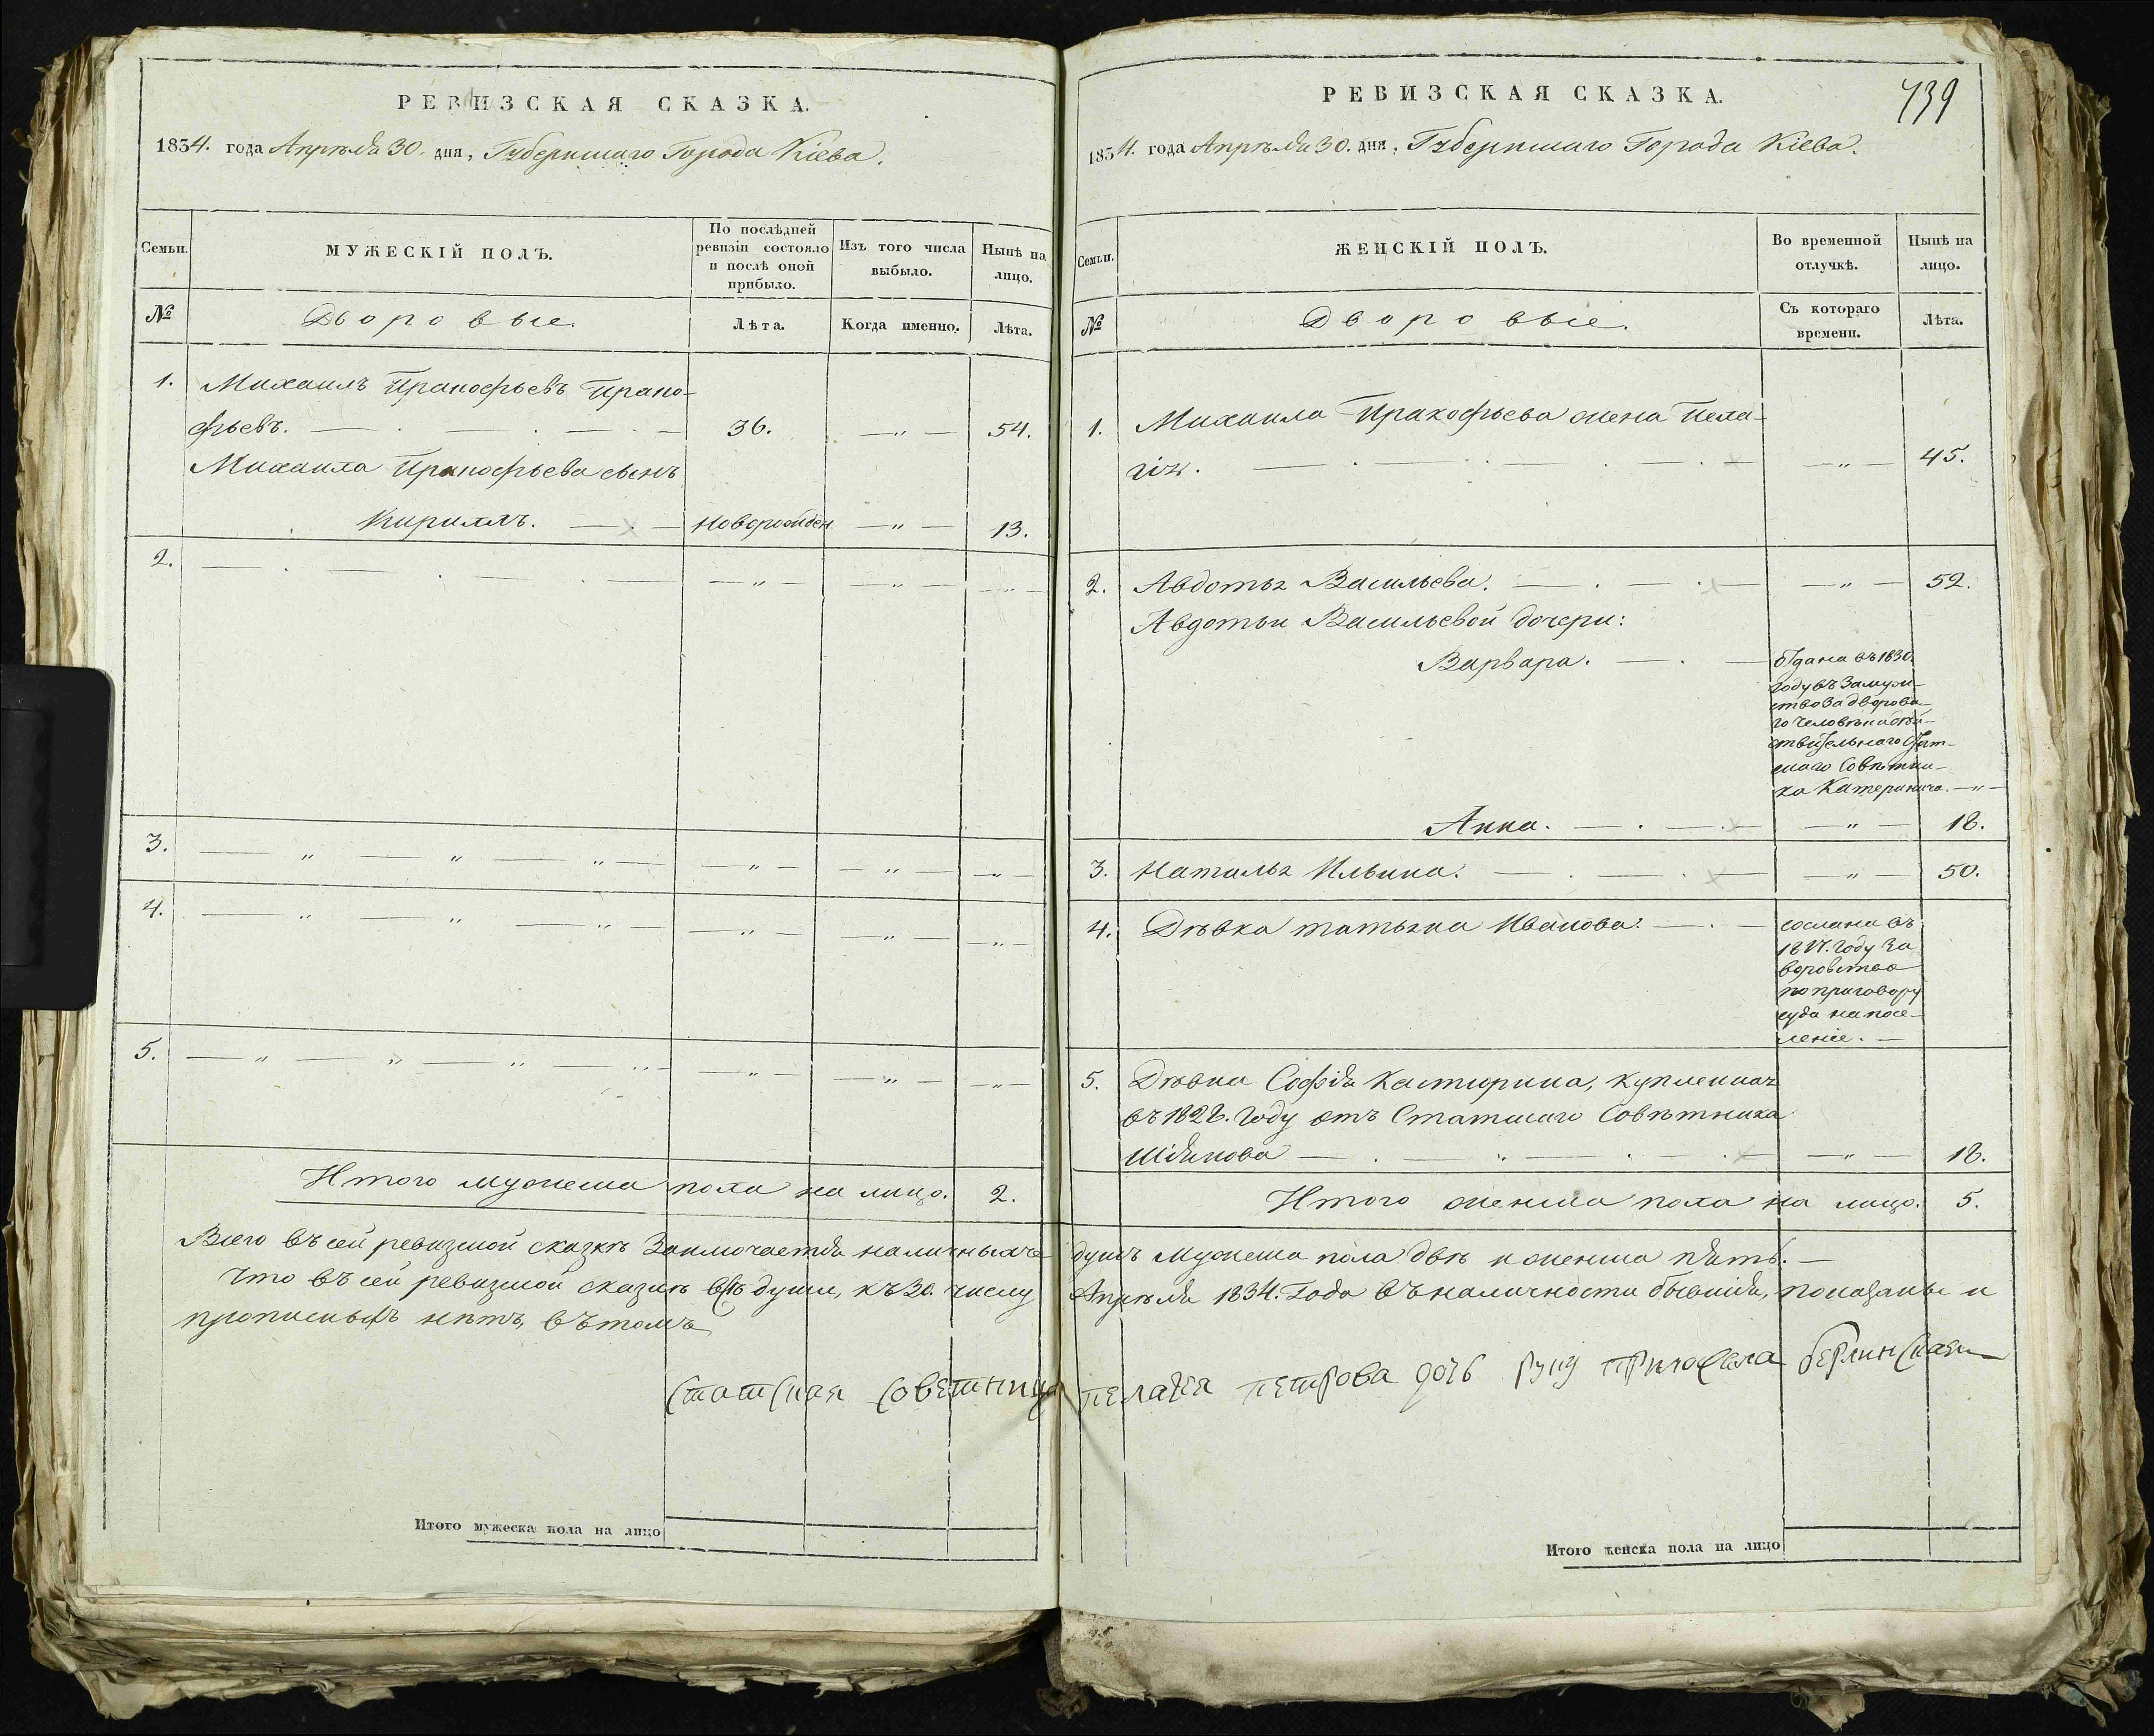 РЕВИЗСКАЯ СКАЗКА.
1834. года Апрѣля 30. дня, Губернскаго Города Кіева.
Семьи.
МУЖЕСКІЙ ПОЛЪ.
По послѣдней ревизіи состояло и послѣ оной прибыло.
Изъ того числа выбыло.
Нынѣ на лицо.
№
Дворовые.
Лѣта.
Когда именно.
Лѣта.
1. Михаилъ Пракофьевъ Прако-
фьевъ. 36. — „ — 54.
Михаила Пракофьева сынъ
Кириллъ. новорожден — „ — 13.
2. — „ — — „ — — „ —
3. — „ — „ — „ — — „ — — „ — — „ —
4. — „ — „ — „ — — „ — — „ — — „ —
5. — „ — „ — „ — — „ — — „ — — „ —
Итого мужеска пола на лицо. 2.
Всего въ сей ревизской сказкѣ Заключается наличныхъ
что въ сей ревизской сказкѣ всѣ души, къ 30. числу
прописныхъ нѣтъ, въ томъ
статская советница
Итого мужеска пола на лицо
739
РЕВИЗСКАЯ СКАЗКА.
1834. года Апрѣля 30. дня, Губернскаго Города Кіева.
Семьи.
ЖЕНСКІЙ ПОЛЪ.
Во временной отлучкѣ.
Нынѣ на лицо.
№
Дворовые.
Съ котораго времени.
Лѣта.
1. Михаила Пракофьева жена Пела-
гія. — „ — 45.
2. Авдотья Васильева. — „ — 52.
Авдотьи Васильевой дочери:
Варвара. отдана въ 1830.
году въ Замуж-
ство за дворова-
го человѣка дѣй-
ствительнаго Стат-
скаго Совѣтни-
ка Катеринича. — „ —
Анна. — „ — 18.
3. Наталья Ильина. — „ — 50.
4. Дѣвка Татьяна Иванова. сослана въ
18 году За
воровство
по приговору
суда на посе-
леніе. —
5. Дѣвка Софія Кастюрина, купленная
въ 1828. Году отъ Статскаго Совѣтника
— „ — 18.
Итого женска пола на лицо. 5.
душъ мужеска пола двѣ и женска пять. —
Апрѣля 1834. Года въ наличности бывшія, показаны и
пелагея петрова дочь руку приложила берлинская
Итого женска пола на лицо